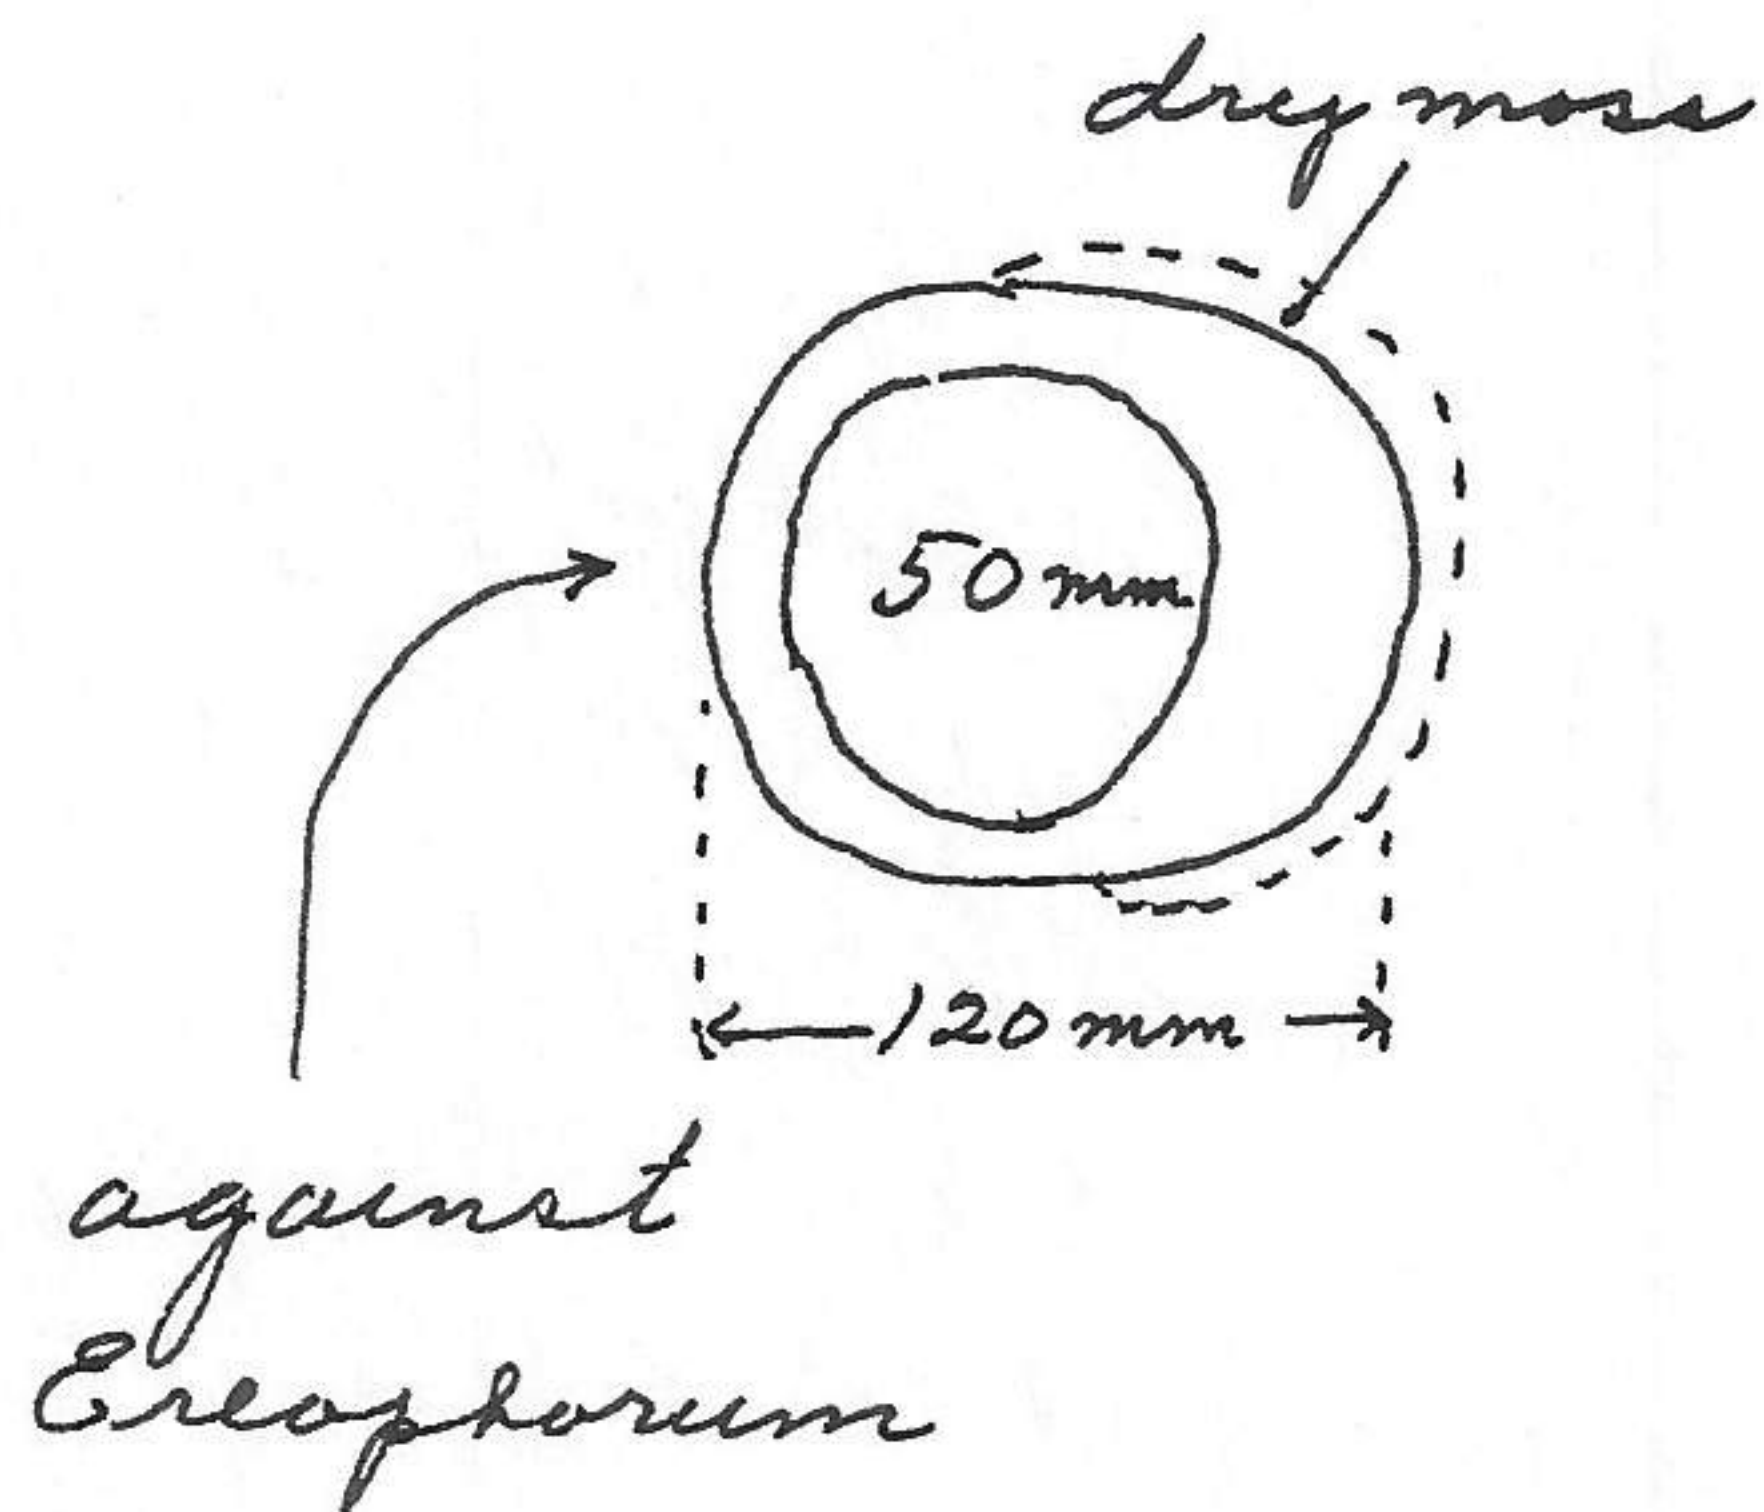 dry moss
50 mm
120 mm
against
Ereophorum